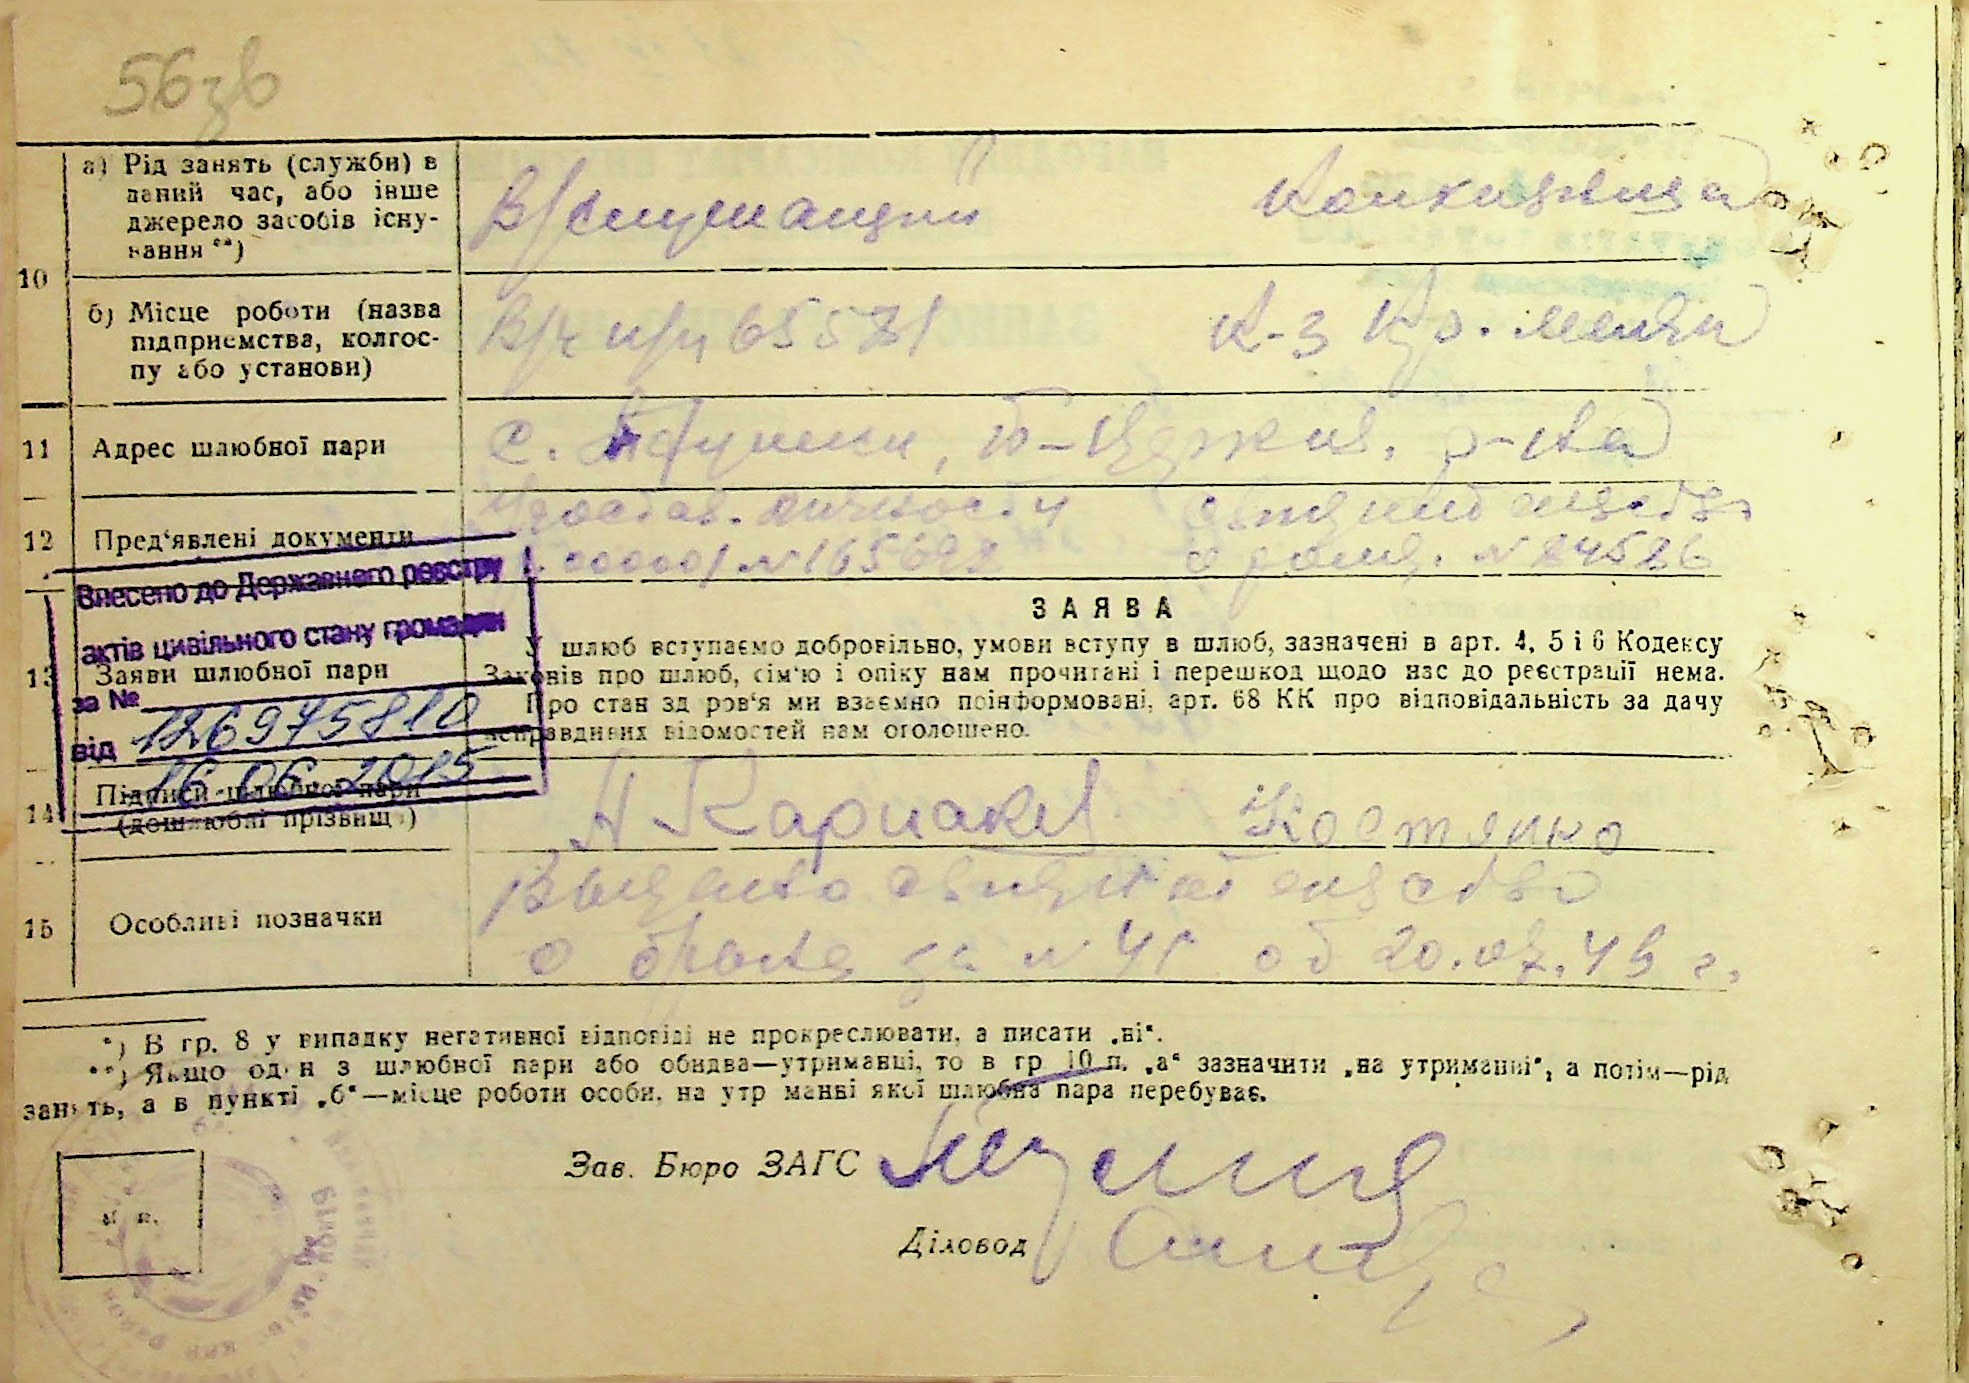 56зв
10
а) Рід занять (служби) в
даний час, або інше
джерело засобів існу-
вання **)
В/служащий
б) Місце роботи (назва
підприємства, колгос-
пу або установи)
В/ч п/п 65581
К-з Кр. маяк
11
Адрес шлюбної пари
с.
12
Пред'явлені документи
Удостов. личности
свидетельство
000001 № 165692
№ 24526
Внесено до Державного реєстру
актів цивільного стану громадян
за № 126975810
від 16.06.2015
ЗАЯВА
13
Заяви шлюбної пари
У шлюб вступаємо добровільно, умови вступу в шлюб, зазначені в арт. 4, 5 і 6 Кодексу
Законів про шлюб, сім'ю і опіку нам прочитані і перешкод щодо нас до реєстрації нема.
Про стан здоров'я ми взаємно поінформовані, арт. 68 КК про відповідальність за дачу
неправдивих відомостей нам оголошено.
14
Підписи шлюбної пари
(дошлюбні прізвища)
Костянко
15
Особливі позначки
Выдано свидетельство
о браке за № 41 от 20.07.49 г.
*) В гр. 8 у випадку негативної відповіді не прокреслювати, а писати „ні“.
**) Якщо один з шлюбної пари або обидва—утриманці, то в гр 10 п. „а“ зазначити „на утриманні“, а потім—рід
занять, а в пункті „б“—місце роботи особи, на утриманні якої шлюбна пара перебуває.
Зав. Бюро ЗАГС
м. п.
Діловод